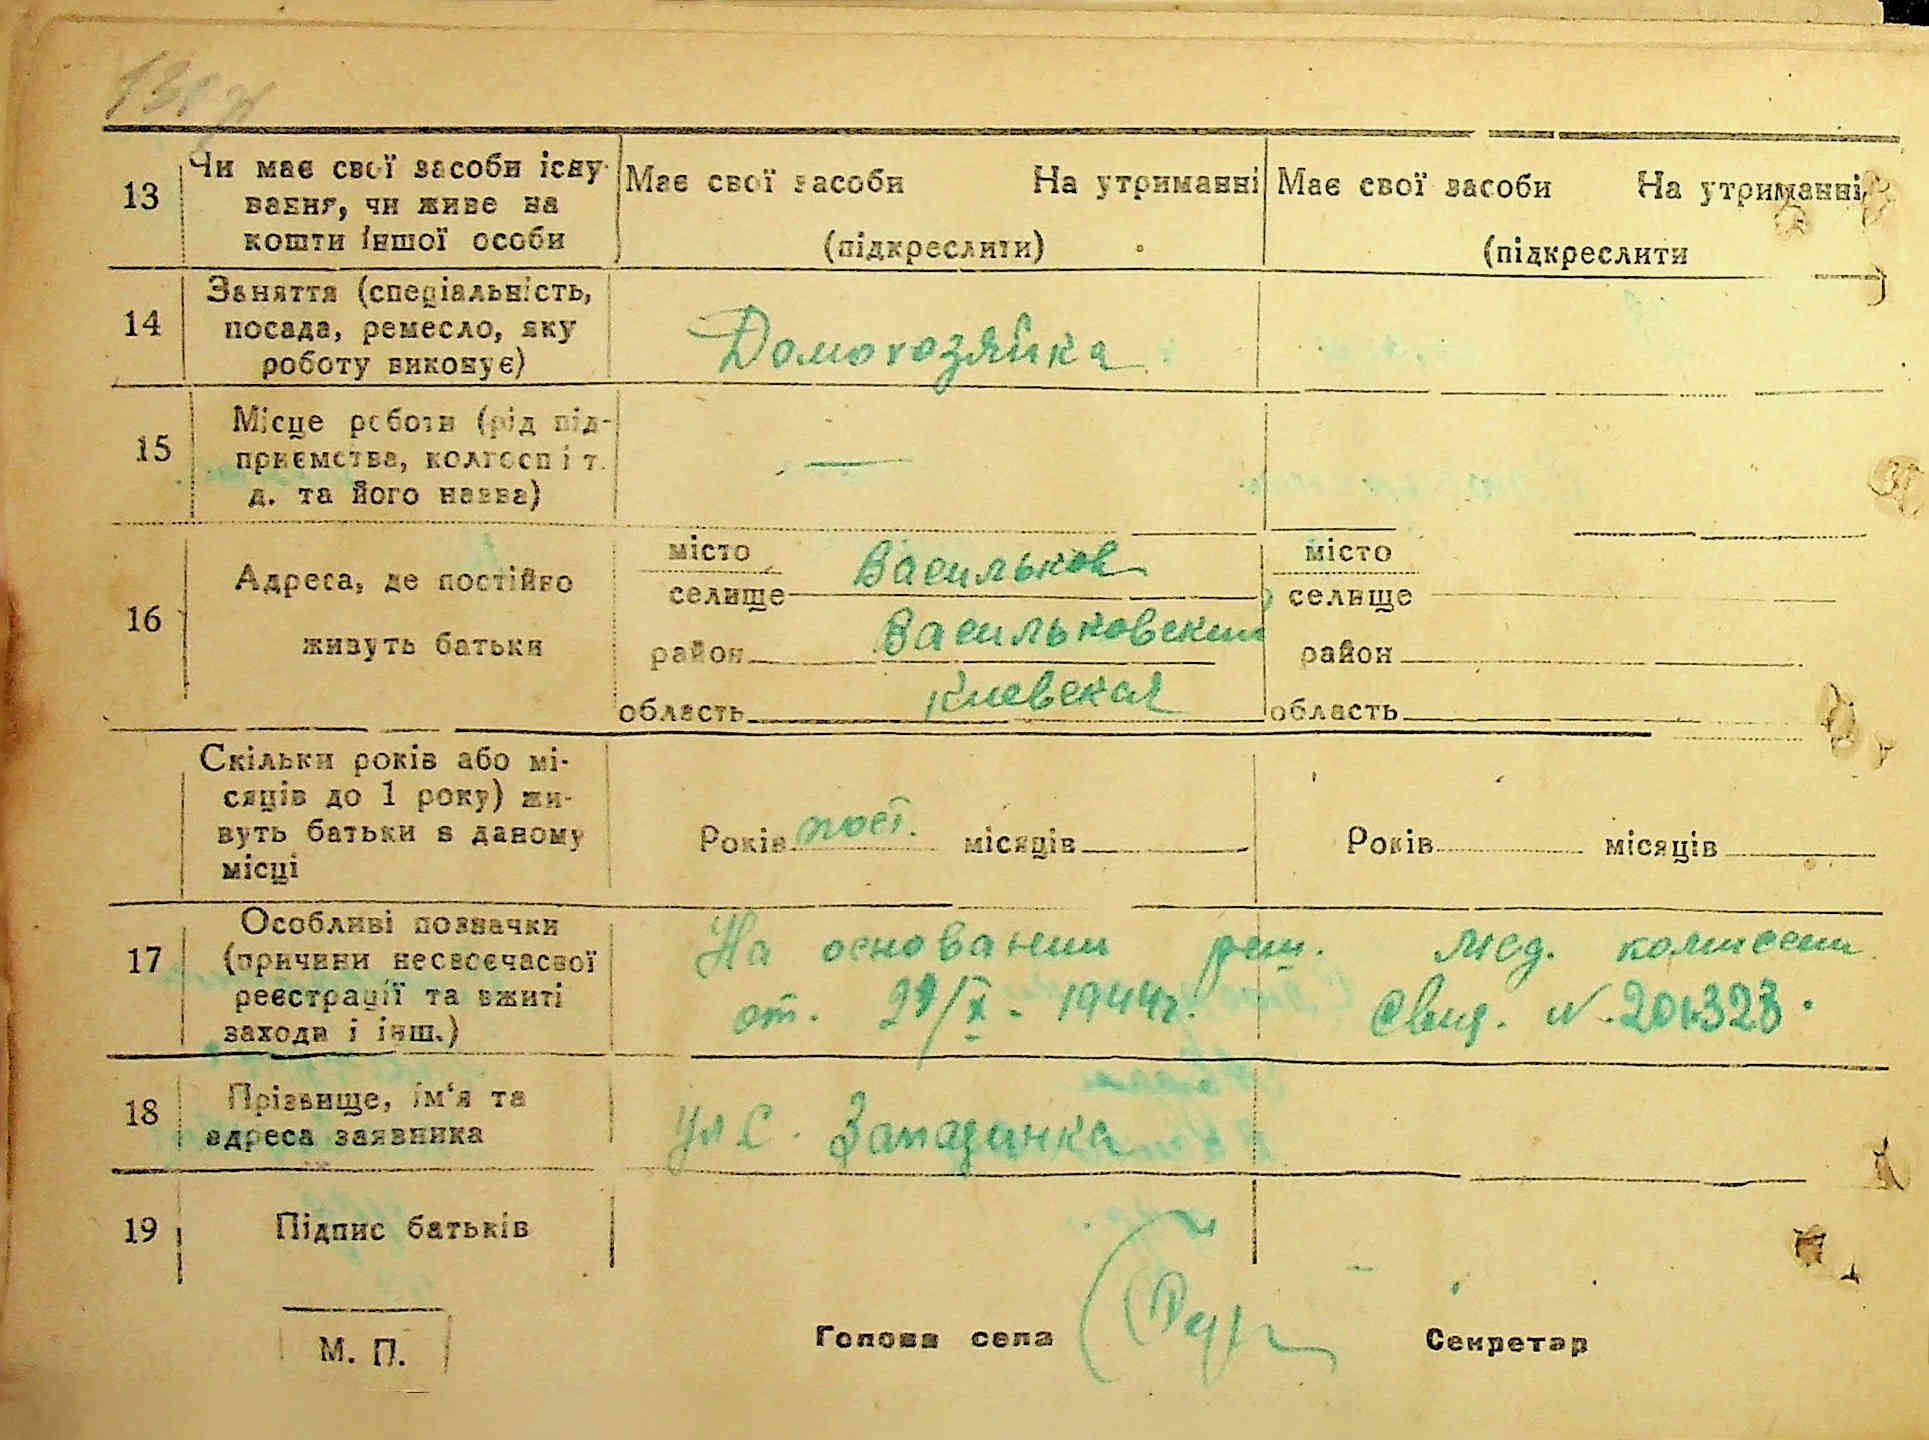 13 Чи має свої засоби існу-
вання, чи живе на
кошти іншої особи
Має свої засоби На утриманні
(підкреслити)
Має свої засоби На утриманні
(підкреслити
14 Заняття (спеціальність,
посада, ремесло, яку
роботу виконує)
Домохозяйка
15 Місце роботи (рід під-
приємства, колгосп і т.
д. та його назва)
—
16 Адреса, де постійно
живуть батьки
місто
селище Васильков
район Васильковский
область Киевская
місто
селище
район
область
Скільки років або мі-
сяців до 1 року) жи-
вуть батьки в даному
місці
Років пост. місяців
Років місяців
17 Особливі позначки
(причини несвоєчасної
реєстрації та вжиті
заходи і інш.)
На основании реш. мед. комиссии
от. 29/X - 1944г. Свид. N.
18 Прізвище, ім'я та
адреса заявника
ул С. Западинка
19 Підпис батьків
М. П.
Голова села
Секретар